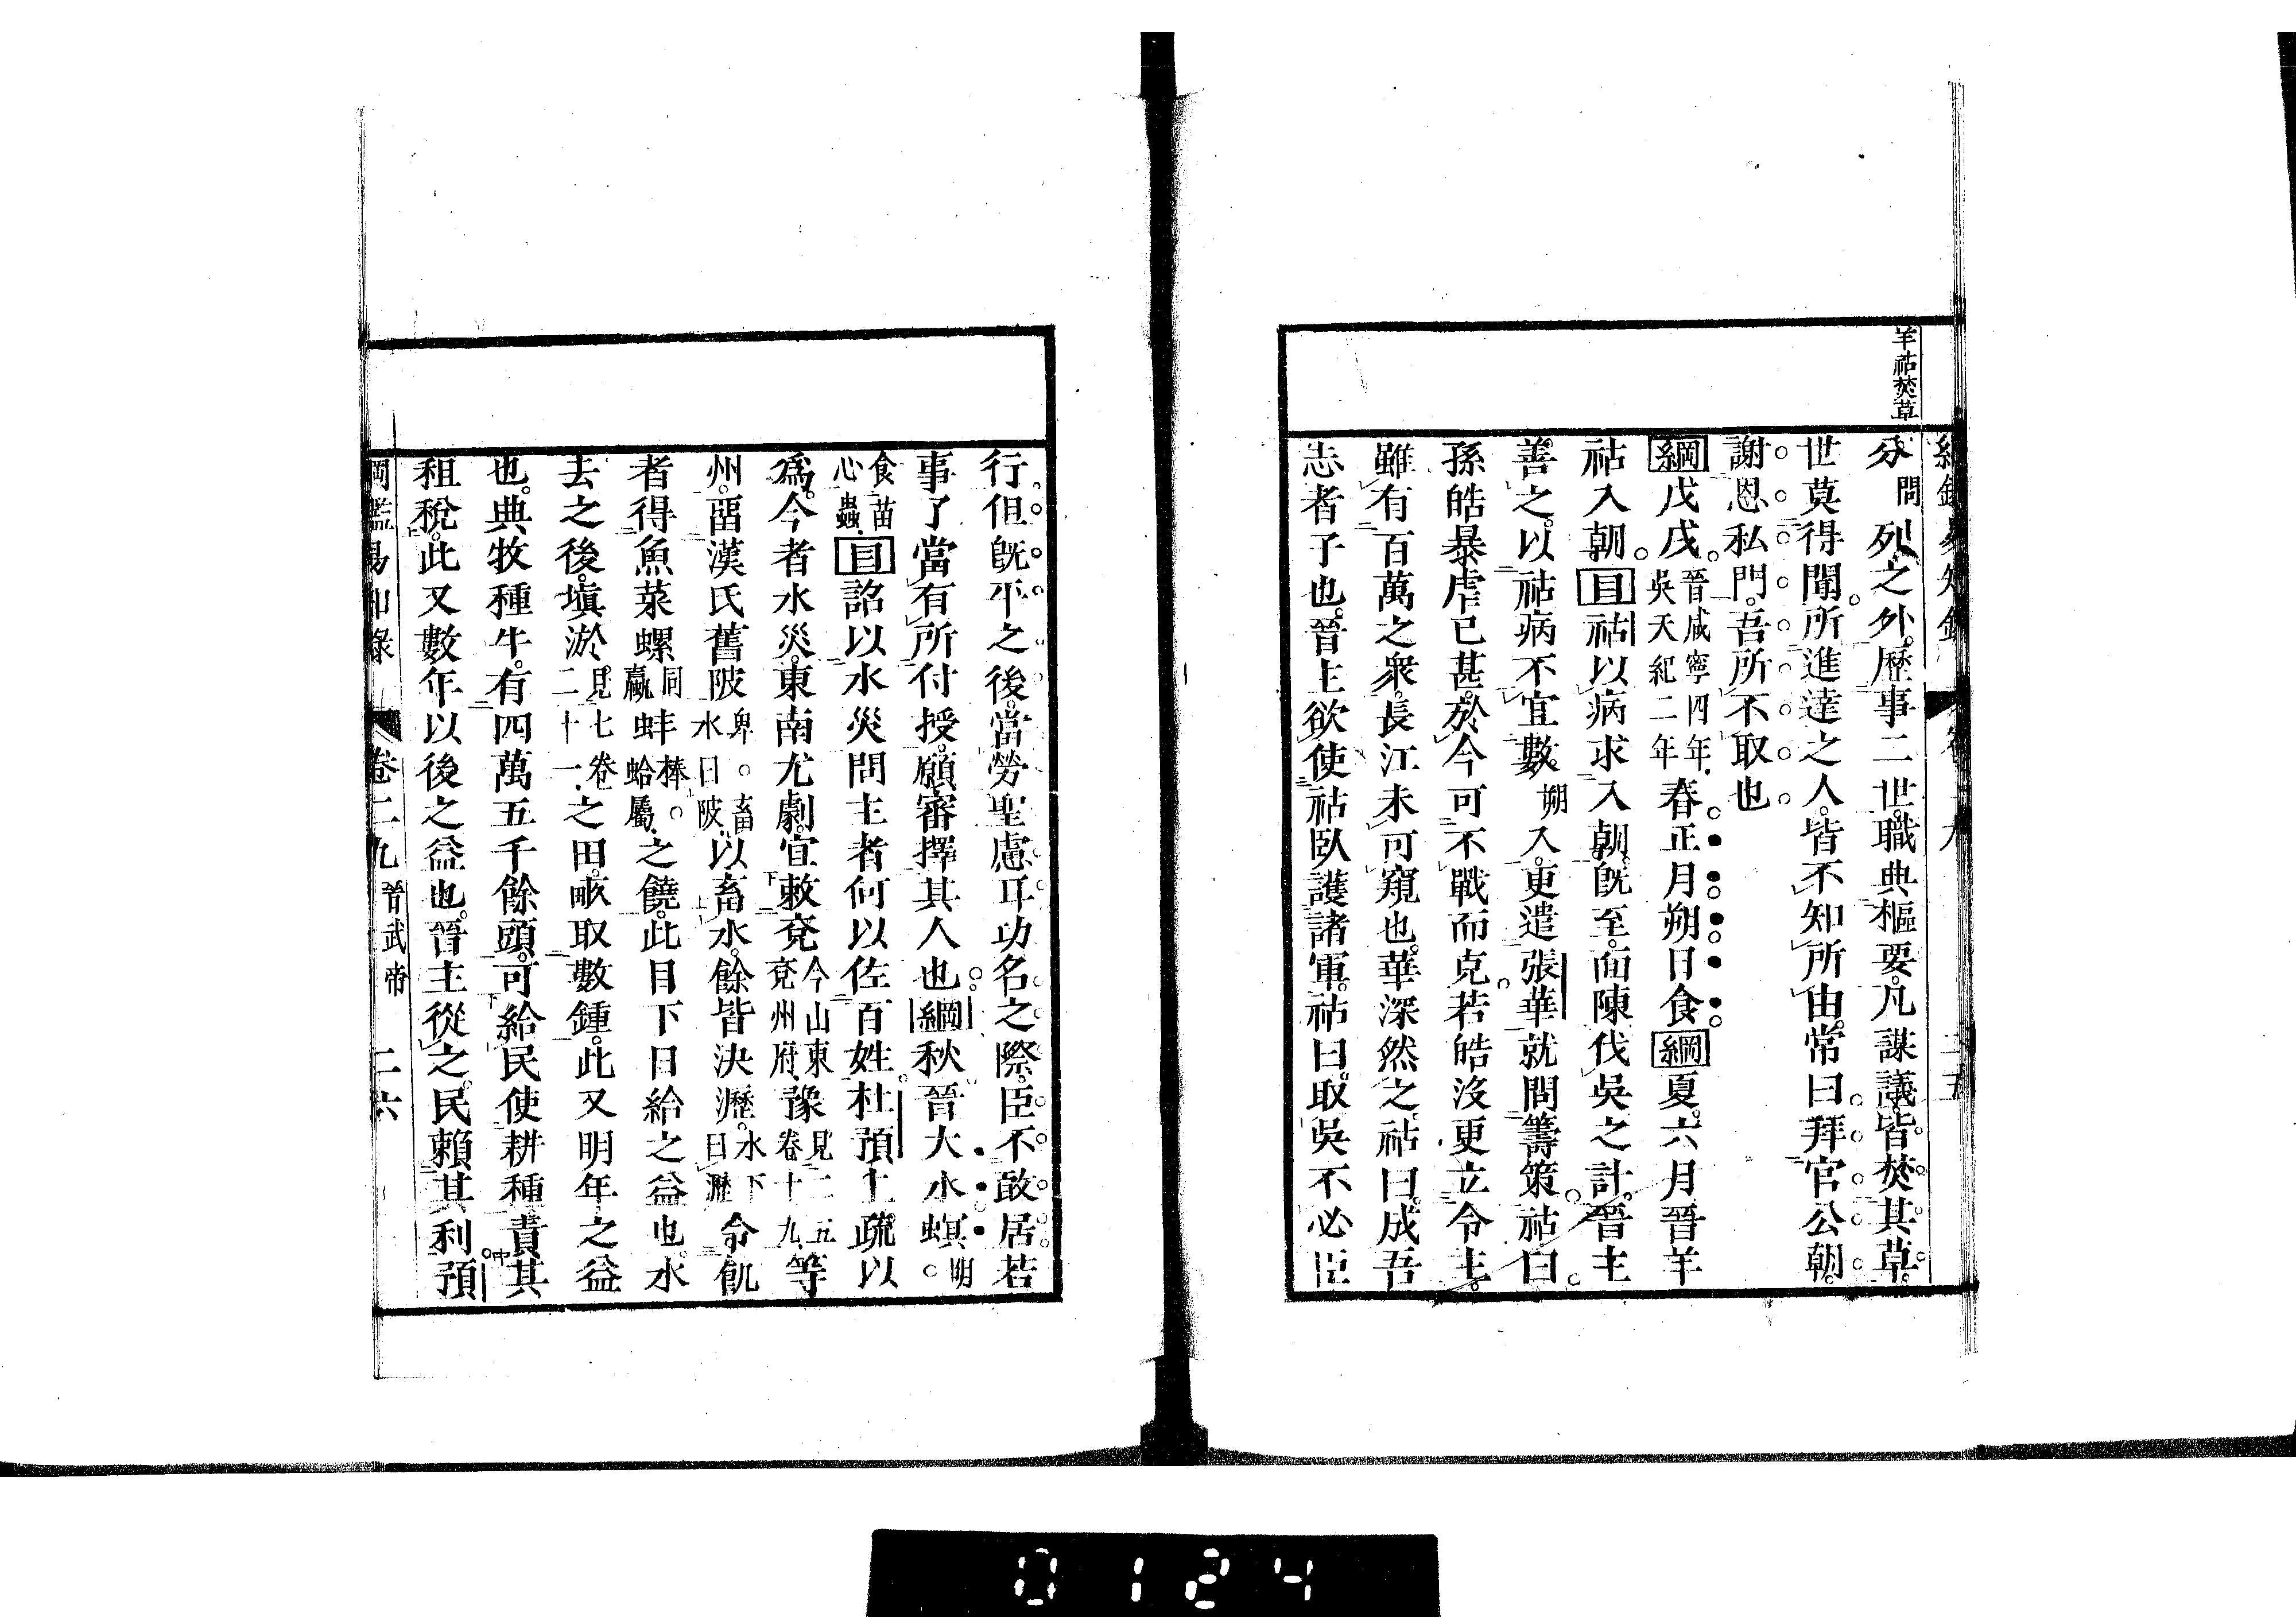 羊祜焚草
分問列之外。歷事二世。職典樞要。凡謀議。皆焚其草。
世莫得聞。所進達之人。皆不知所由。常曰。拜官公朝。
謝恩私門。吾所不取也
綱戊戌。晉咸寧四年。吳天紀二年。春正月朔日食綱夏。六月晉羊
祜入朝目祜以病求入朝。旣至。面陳伐吳之計。晉主
善之。以祜病不宜數朔入。更遣張華就問籌策。祜曰。
孫皓暴虐已甚。於今可不戰而克。若皓沒更立令主。
雖有百萬之衆。長江未可窺也。華深然之。祜曰。成吾
志者子也。晉主欲使祜臥護諸軍。祜曰。取吳不必臣
行。但旣平之後。當勞聖慮耳。功名之際。臣不敢居。若
事了當有所付授。願審擇其人也。綱秋晉大水螟。明
食苗心蟲。目詔以水災問主者。何以佐百姓。杜預上疏以
爲。今者水災。東南尤劇。宜敕兗今山東兗州府。豫見二五卷十九。等
州。畱漢氏舊陂卑。畜水曰陂。以畜水。餘皆決瀝。水下曰瀝。令飢
者得魚菜螺同蠃蚌棒。蚌蛤屬。之饒。此目下日給之益也。水
去之後。塡淤。見七卷二十一。之田。畝取數鍾。此又明年之益
也。典牧種牛。有四萬五千餘頭。可給民使耕種。責其
租稅。此又數年以後之益也。晉主從之。民賴其利。預
綱鑑易知錄 卷二九 晉武帝 二六